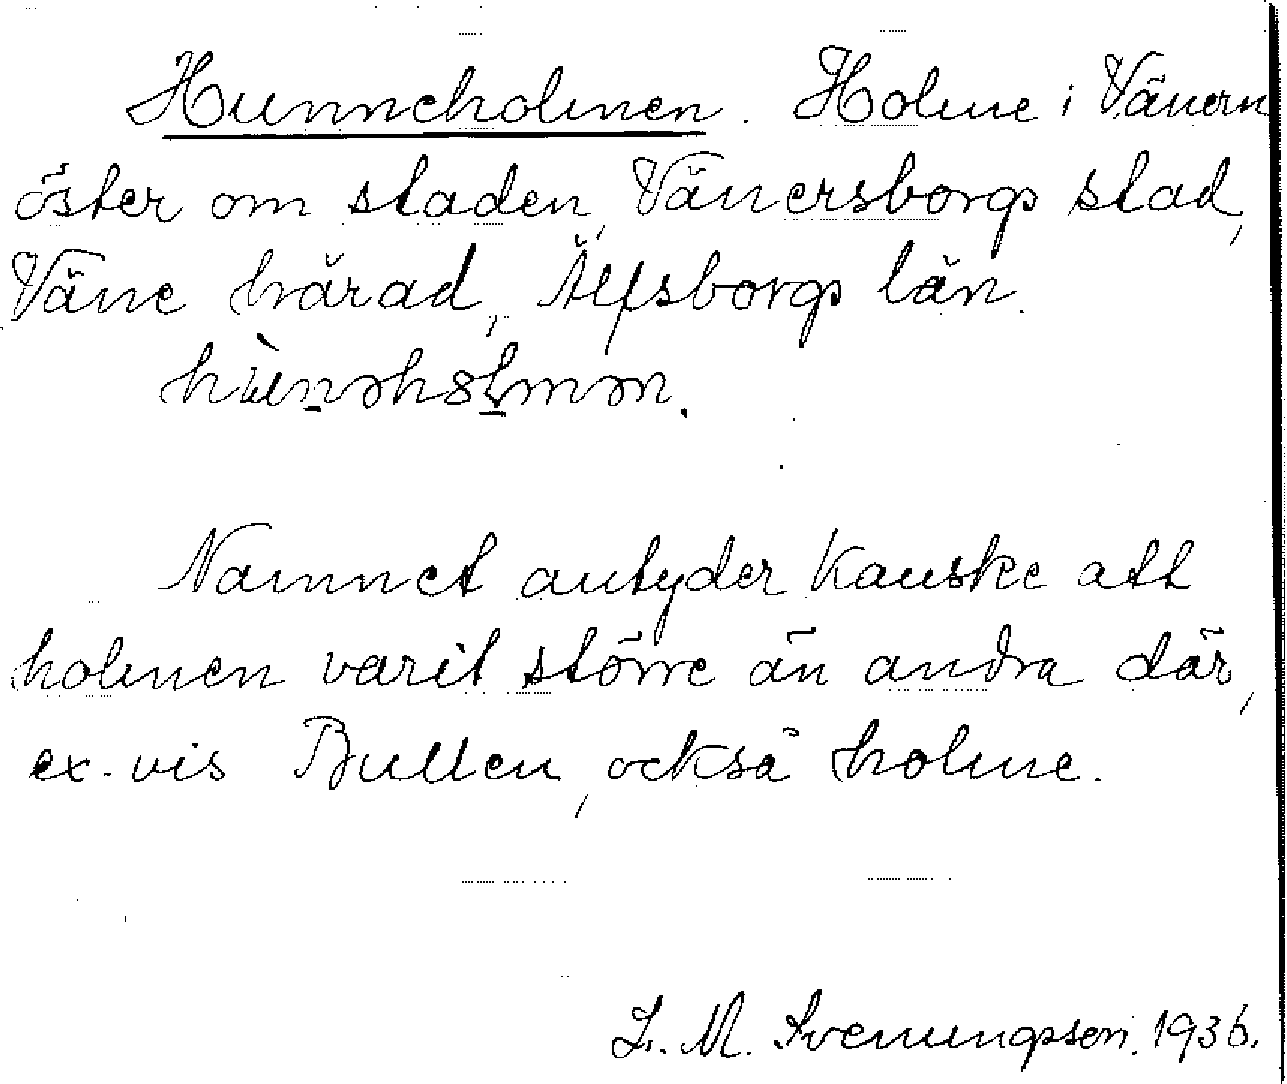 Hunneholmen. Holme i Vänern
öster om staden, Vänersborgs stad,
Väne härad, Älfsborgs län.
hùnəhɷlmən.
Namnet antyder kanske att
holmen varit större än andra där,
ex. vis Bullen, också holme.
L. M. Svenungsson. 1936.